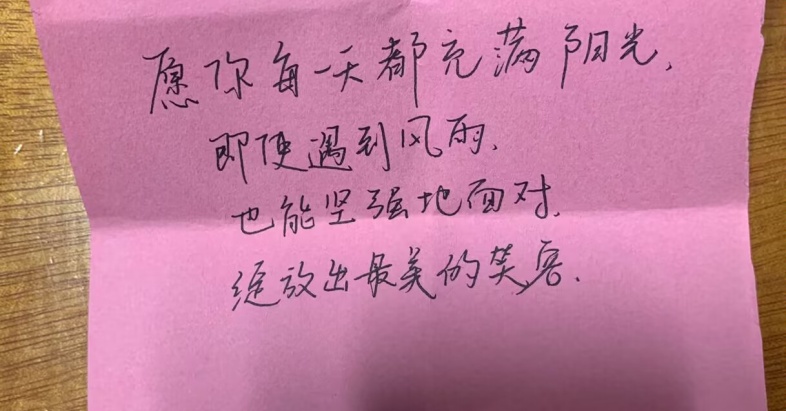 愿你每一天都充满阳光,
即便遇到风雨,
也能坚强地面对,
绽放出最美的笑容.